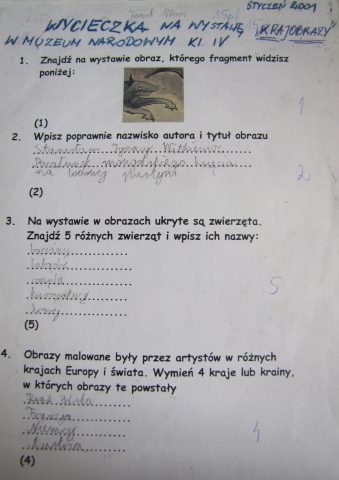 STYCZEŃ 2001
15p
WYCIECZKA NA WYSTAWĘ "KRAJOBRAZY"
W MUZEUM NARODOWYM KL. IV
1. Znajdź na wystawie obraz, którego fragment widzisz
poniżej:
(1)
1
2. Wpisz poprawnie nazwisko autora i tytuł obrazu
Stanisław Ignacy Witkiewicz
mongolskiego
na lodowej
(2)
2
3. Na wystawie w obrazach ukryte są zwierzęta.
Znajdź 5 różnych zwierząt i wpisz ich nazwy:
barany
łabędź
czapla
kuropatwy
konie
(5)
5
4. Obrazy malowane były przez artystów w różnych
krajach Europy i świata. Wymień 4 kraje lub krainy,
w których obrazy te powstały
Francja
Niemcy
(4)
4